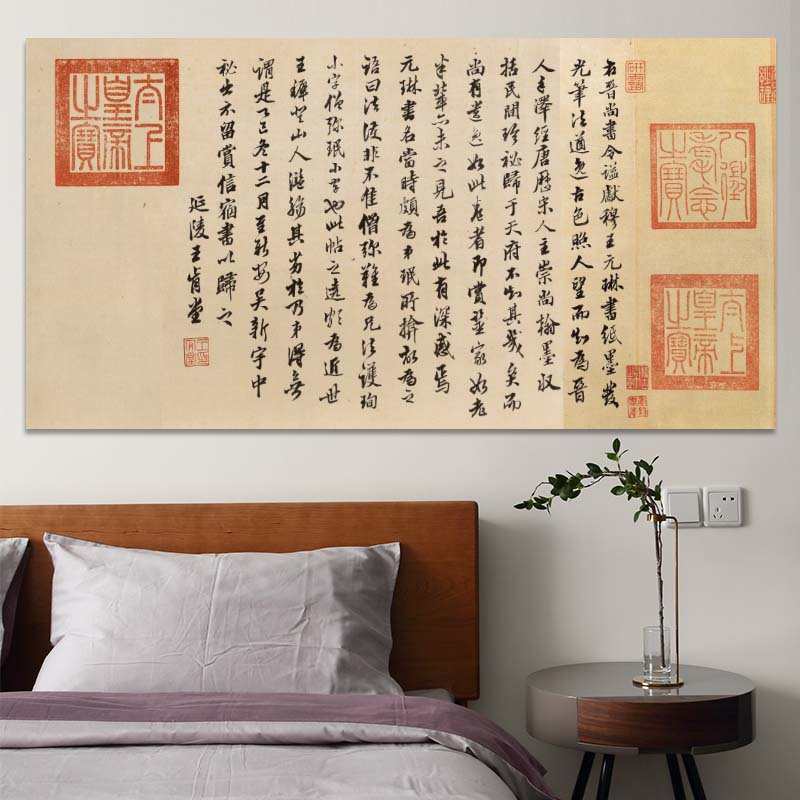 八徵耄念之寶
太上皇帝之寶
右晉尚書令謚獻穆王元琳書紙墨發
光筆法遒逸古色照人望而知為晉
人手澤經唐歷宋人主崇尚翰墨收
括民間珍秘歸于天府不知其幾矣而
尚有遺逸如此卷者即賞鑒家如老
米輩亦未之見吾於此有深感焉
元琳書名當時頗為弟珉所揜故為之
語曰法護非不佳僧彌難為兄法護珣
小字僧彌珉小字也此帖之遠為近世
王人其劣於乃弟得無
謂是己冬十二月至新安吳新宇中
秘出示留賞信宿書以歸之
延陵王肯堂
太上皇帝之寶